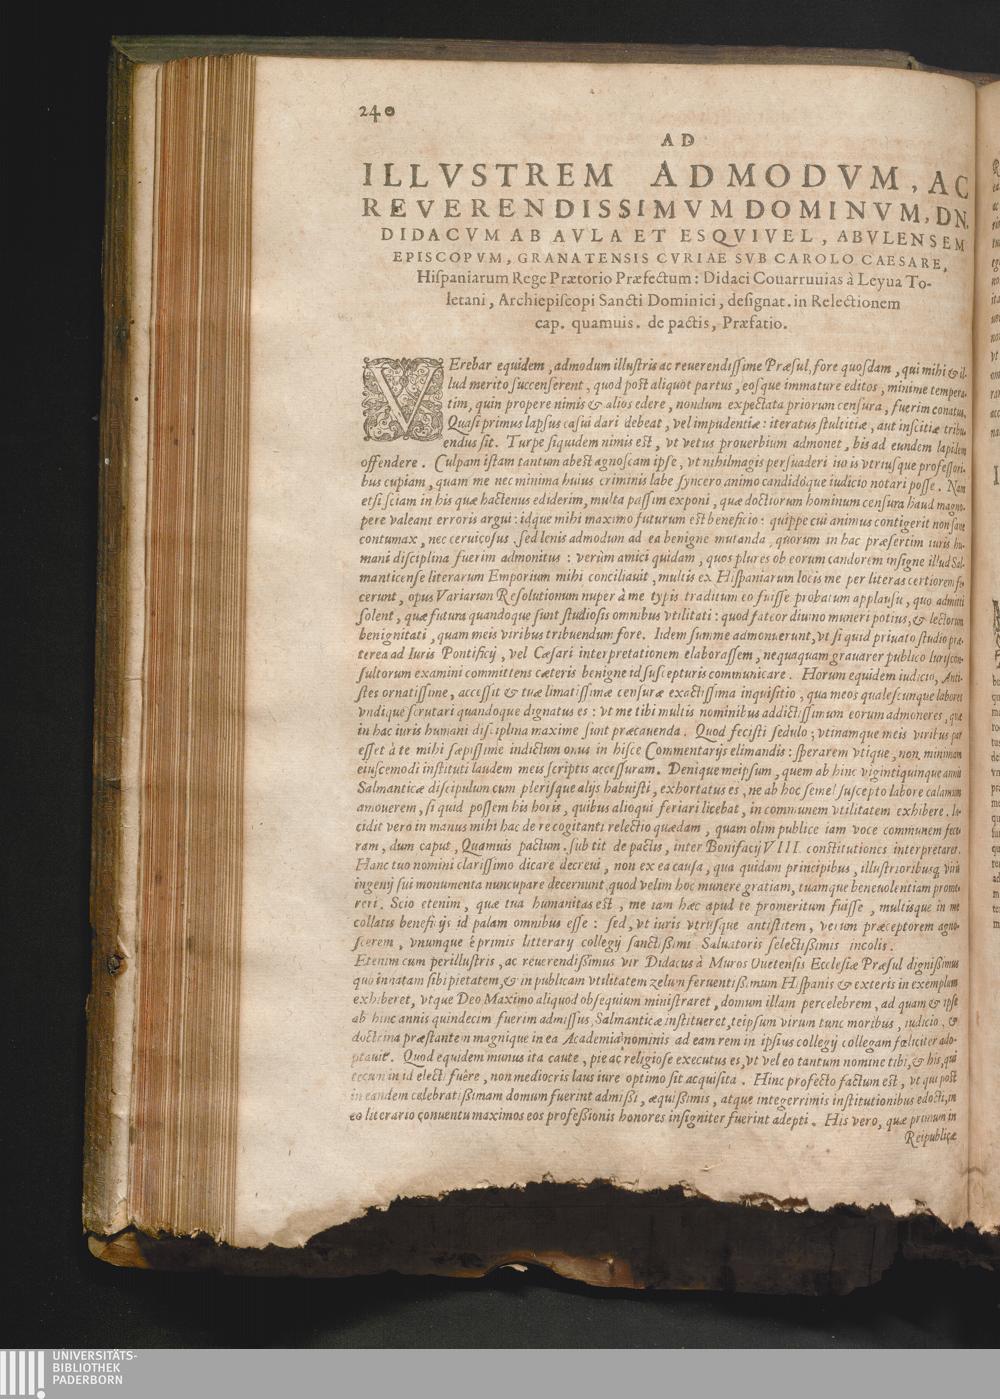 240
AD
ILLVSTREM ADMODVM, AC
REVERENDISSIMVM DOMINVM, DN.
DIDACVM AB AVLA ET ESQVIVEL, ABVLENSEM
EPISCOPVM, GRANATENSIS CVRIAE SVB CAROLO CAESARE,
Hiſpaniarum Rege Prætorio Præfectum: Didaci Couarruuias à Leyua To-
letani, Archiepiſcopi Sancti Dominici, deſignat. in Relectionem
cap. quamuis. de pactis, Præfatio.
VErebar equidem, admodum illuſtris ac reuerendiſſime Præſul, fore quoſdam, qui mihi & il-
lud merito ſuccenſerent, quod poſt aliquot partus, eoſque immature editos, minime tempera-
tim, quin propere nimis & alios edere, nondum expectata priorum cenſura, fuerim conatus.
Quaſi primus lapſus caſui dari debeat, vel impudentiæ: iteratus ſtultitiæ, aut inſcitiæ tribu-
endus ſit. Turpe ſiquidem nimis eſt, vt vetus prouerbium admonet, bis ad eundem lapidem
offendere. Culpam iſtam tantum abeſt agnoſcam ipſe, vt nihilmagis perſuaderi iuris vtriuſque profeſſori-
bus cupiam, quam me nec minima huius criminis labe ſyncero animo candidoque iudicio notari poſſe. Nam
etſi ſciam in his quæ hactenus ediderim, multa paſſim exponi, quæ doctiorum hominum cenſura haud magno-
pere valeant erroris argui: idque mihi maximo futurum eſt beneficio: quippe cui animus contigerit non ſane
contumax, nec ceruicoſus, ſed lenis admodum ad ea benigne mutanda, quorum in hac præſertim iuris hu-
mani diſciplina fuerim admonitus: verùm amici quidam, quos plures ob eorum candorem inſigne illud Sal-
manticenſe literarum Emporium mihi conciliauit, multis ex Hiſpaniarum locis me per literas certiorem fe-
cerunt, opus Variarum Reſolutionum nuper à me typis traditum eo fuiſſe probatum applauſu, quo admitti
ſolent, quæ futura quandoque ſunt ſtudioſis omnibus vtilitati: quod fateor diuino muneri potius, & lectorum
benignitati, quam meis viribus tribuendum fore. Iidem ſumme admonuerunt, vt ſi quid priuato ſtudio præ-
terea ad Iuris Pontificij, vel Cæſari interpretationem elaboraſſem, nequaquam grauarer publico Iuriſcon-
ſultorum examini committens cæteris benigne id ſuſcepturis communicare. Horum equidem iudicio, Anti-
ſtes ornatiſſime, acceſſit & tuæ limatiſſimæ cenſuræ exactiſſima inquiſitio, qua meos qualeſcunque labores
vndique ſcrutari quandoque dignatus es: vt me tibi multis nominibus addictiſſimum eorum admoneres, quæ
in hac iuris humani diſciplina maxime ſunt præcauenda. Quod feciſti ſedulo; vtinamque meis viribus par
eſſet à te mihi ſæpiſſime indictum onus in hiſce Commentarijs elimandis: ſperarem vtique, non minimam
eiuſcemodi inſtituti laudem meis ſcriptis acceſſuram. Denique meipſum, quem ab hinc vigintiquinque annis
Salmanticæ diſcipulum cum pleriſque alijs habuiſti, exhortatus es, ne ab hoc ſemel ſuſcepto labore calamum
amouerem, ſi quid poſſem his horis, quibus alioqui feriari licebat, in communem vtilitatem exhibere. In-
cidit vero in manus mihi hac de re cogitanti relectio quædam, quam olim publice iam voce communem fece-
ram, dum caput, Quamuis pactum. ſub tit de pactis, inter Bonifacij VIII. conſtitutiones interpretarer.
Hanc tuo nomini clariſſimo dicare decreui, non ex ea cauſa, qua quidam principibus, illuſtrioribusq́ viris
ingenij ſui monumenta nuncupare decernunt, quod velim hoc munere gratiam, tuamque beneuolentiam prome-
reri. Scio etenim, quæ tua humanitas eſt, me iam hæc apud te promeritum fuiſſe, multisque in me
collatis beneficijs id palam omnibus eſſe: ſed, vt iuris vtriuſque antiſtitem, verum præceptorem agno-
ſcerem, vnumque è primis litterary collegij ſanctißimi Saluatoris ſelectißimis incolis.
Etenim cum perilluſtris, ac reuerendißimus vir Didacus à Muros Ouetenſis Eccleſiæ Præſul dignißimus
quo innatam ſibi pietatem, & in publicam vtilitatem zelum feruentißimum Hiſpanis & exteris in exemplum
exhiberet, vtque Deo Maximo aliquod obſequium miniſtraret, domum illam percelebrem, ad quam & ipſe
ab hinc annis quindecim fuerim admiſſus, Salmanticæ inſtitueret, teipſum virum tunc moribus, iudicio, &
doctrina præſtantem magnique in ea Academia nominis ad eam rem in ipſius collegij collegam fœliciter ado-
ptauit. Quod equidem munus ita caute, pie ac religioſe executus es, vt vel eo tantum nomine tibi, & his, qui
tecum in id electi fuêre, non mediocris laus iure optimo ſit acquiſita. Hinc profecto factum eſt, vt qui poſt
in eandem celebratißimam domum fuerint admißi, æquißimis, atque integerrimis inſtitutionibus edocti, in
eo literario conuentu maximos eos profeßionis honores inſigniter fuerint adepti. His vero, quæ primum in
Reipublicæ
UNIVERSITÄTS-
BIBLIOTHEK
PADERBORN